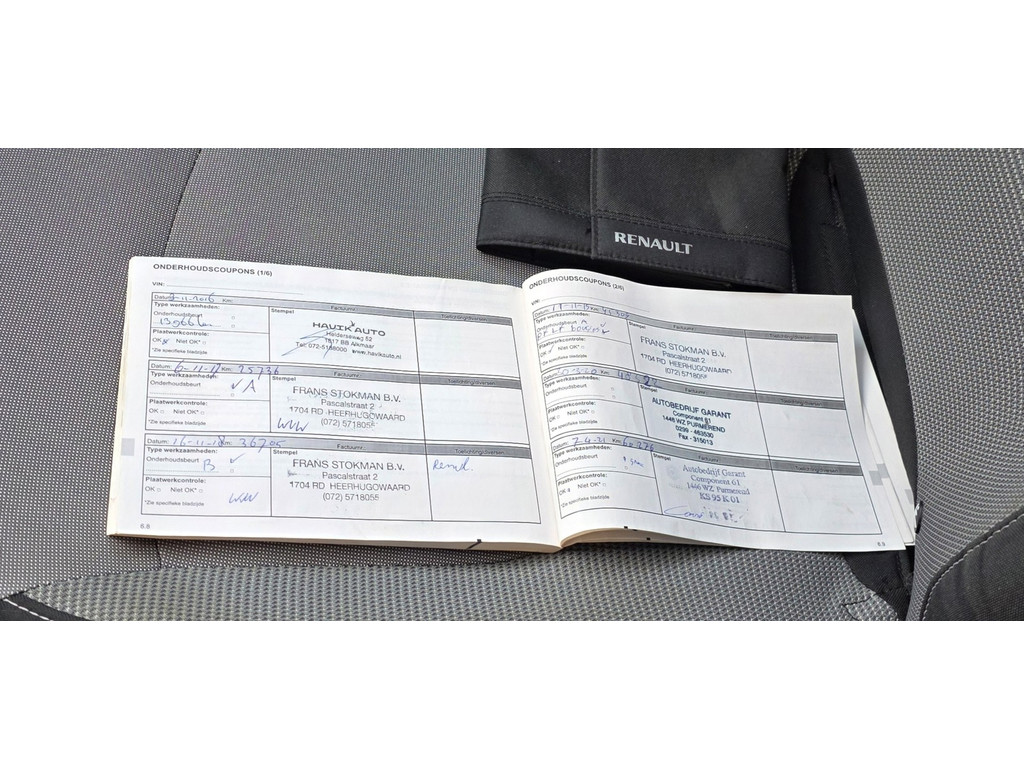 RENAULT
ONDERHOUDSCOUPONS (1/6)
VIN:
Datum: Km:
Type werkzaamheden:
Onderhoudsbeurt
13966 km
Plaatwerkcontrole:
OK Niet OK*
*Zie specifieke bladzijde
Stempel
HAVIK AUTO
Helderseweg 52
1817 BB Alkmaar
Tel. 072-5156000 www.havikauto.nl
Datum: 6-11-17 Km: 25736
Type werkzaamheden:
Onderhoudsbeurt
✓ A
Plaatwerkcontrole:
OK Niet OK*
*Zie specifieke bladzijde
Stempel
FRANS STOKMAN B.V.
Pascalstraat 2
1704 RD HEERHUGOWAARD
(072) 5718055
WW
Datum: 16-11-18 Km: 36705
Type werkzaamheden:
Onderhoudsbeurt
B ✓
Plaatwerkcontrole:
OK Niet OK*
*Zie specifieke bladzijde
WW
Stempel
FRANS STOKMAN B.V.
Pascalstraat 2
1704 RD HEERHUGOWAARD
(072) 5718055
Remvl.
6.8
ONDERHOUDSCOUPONS (2/6)
VIN:
Datum: Km:
Type werkzaamheden:
Onderhoudsbeurt A
Plaatwerkcontrole:
OK Niet OK*
*Zie specifieke bladzijde
Stempel
FRANS STOKMAN B.V.
Pascalstraat 2
1704 RD HEERHUGOWAARD
(072) 571805
Type werkzaamheden:
Onderhoudsbeurt
Plaatwerkcontrole:
OK Niet OK*
*Zie specifieke bladzijde
Stempel
AUTOBEDRIJF GARANT
Component 61
1446 WZ PURMEREND
0299 - 463530
Fax - 315013
Datum: 2-4-21 Km: 60276
Type werkzaamheden:
Onderhoudsbeurt
Plaatwerkcontrole:
OK Niet OK*
*Zie specifieke bladzijde
Stempel
Autobedrijf Garant
Component 61
1446 WZ Purmerend
KS 95 K 01
6.9